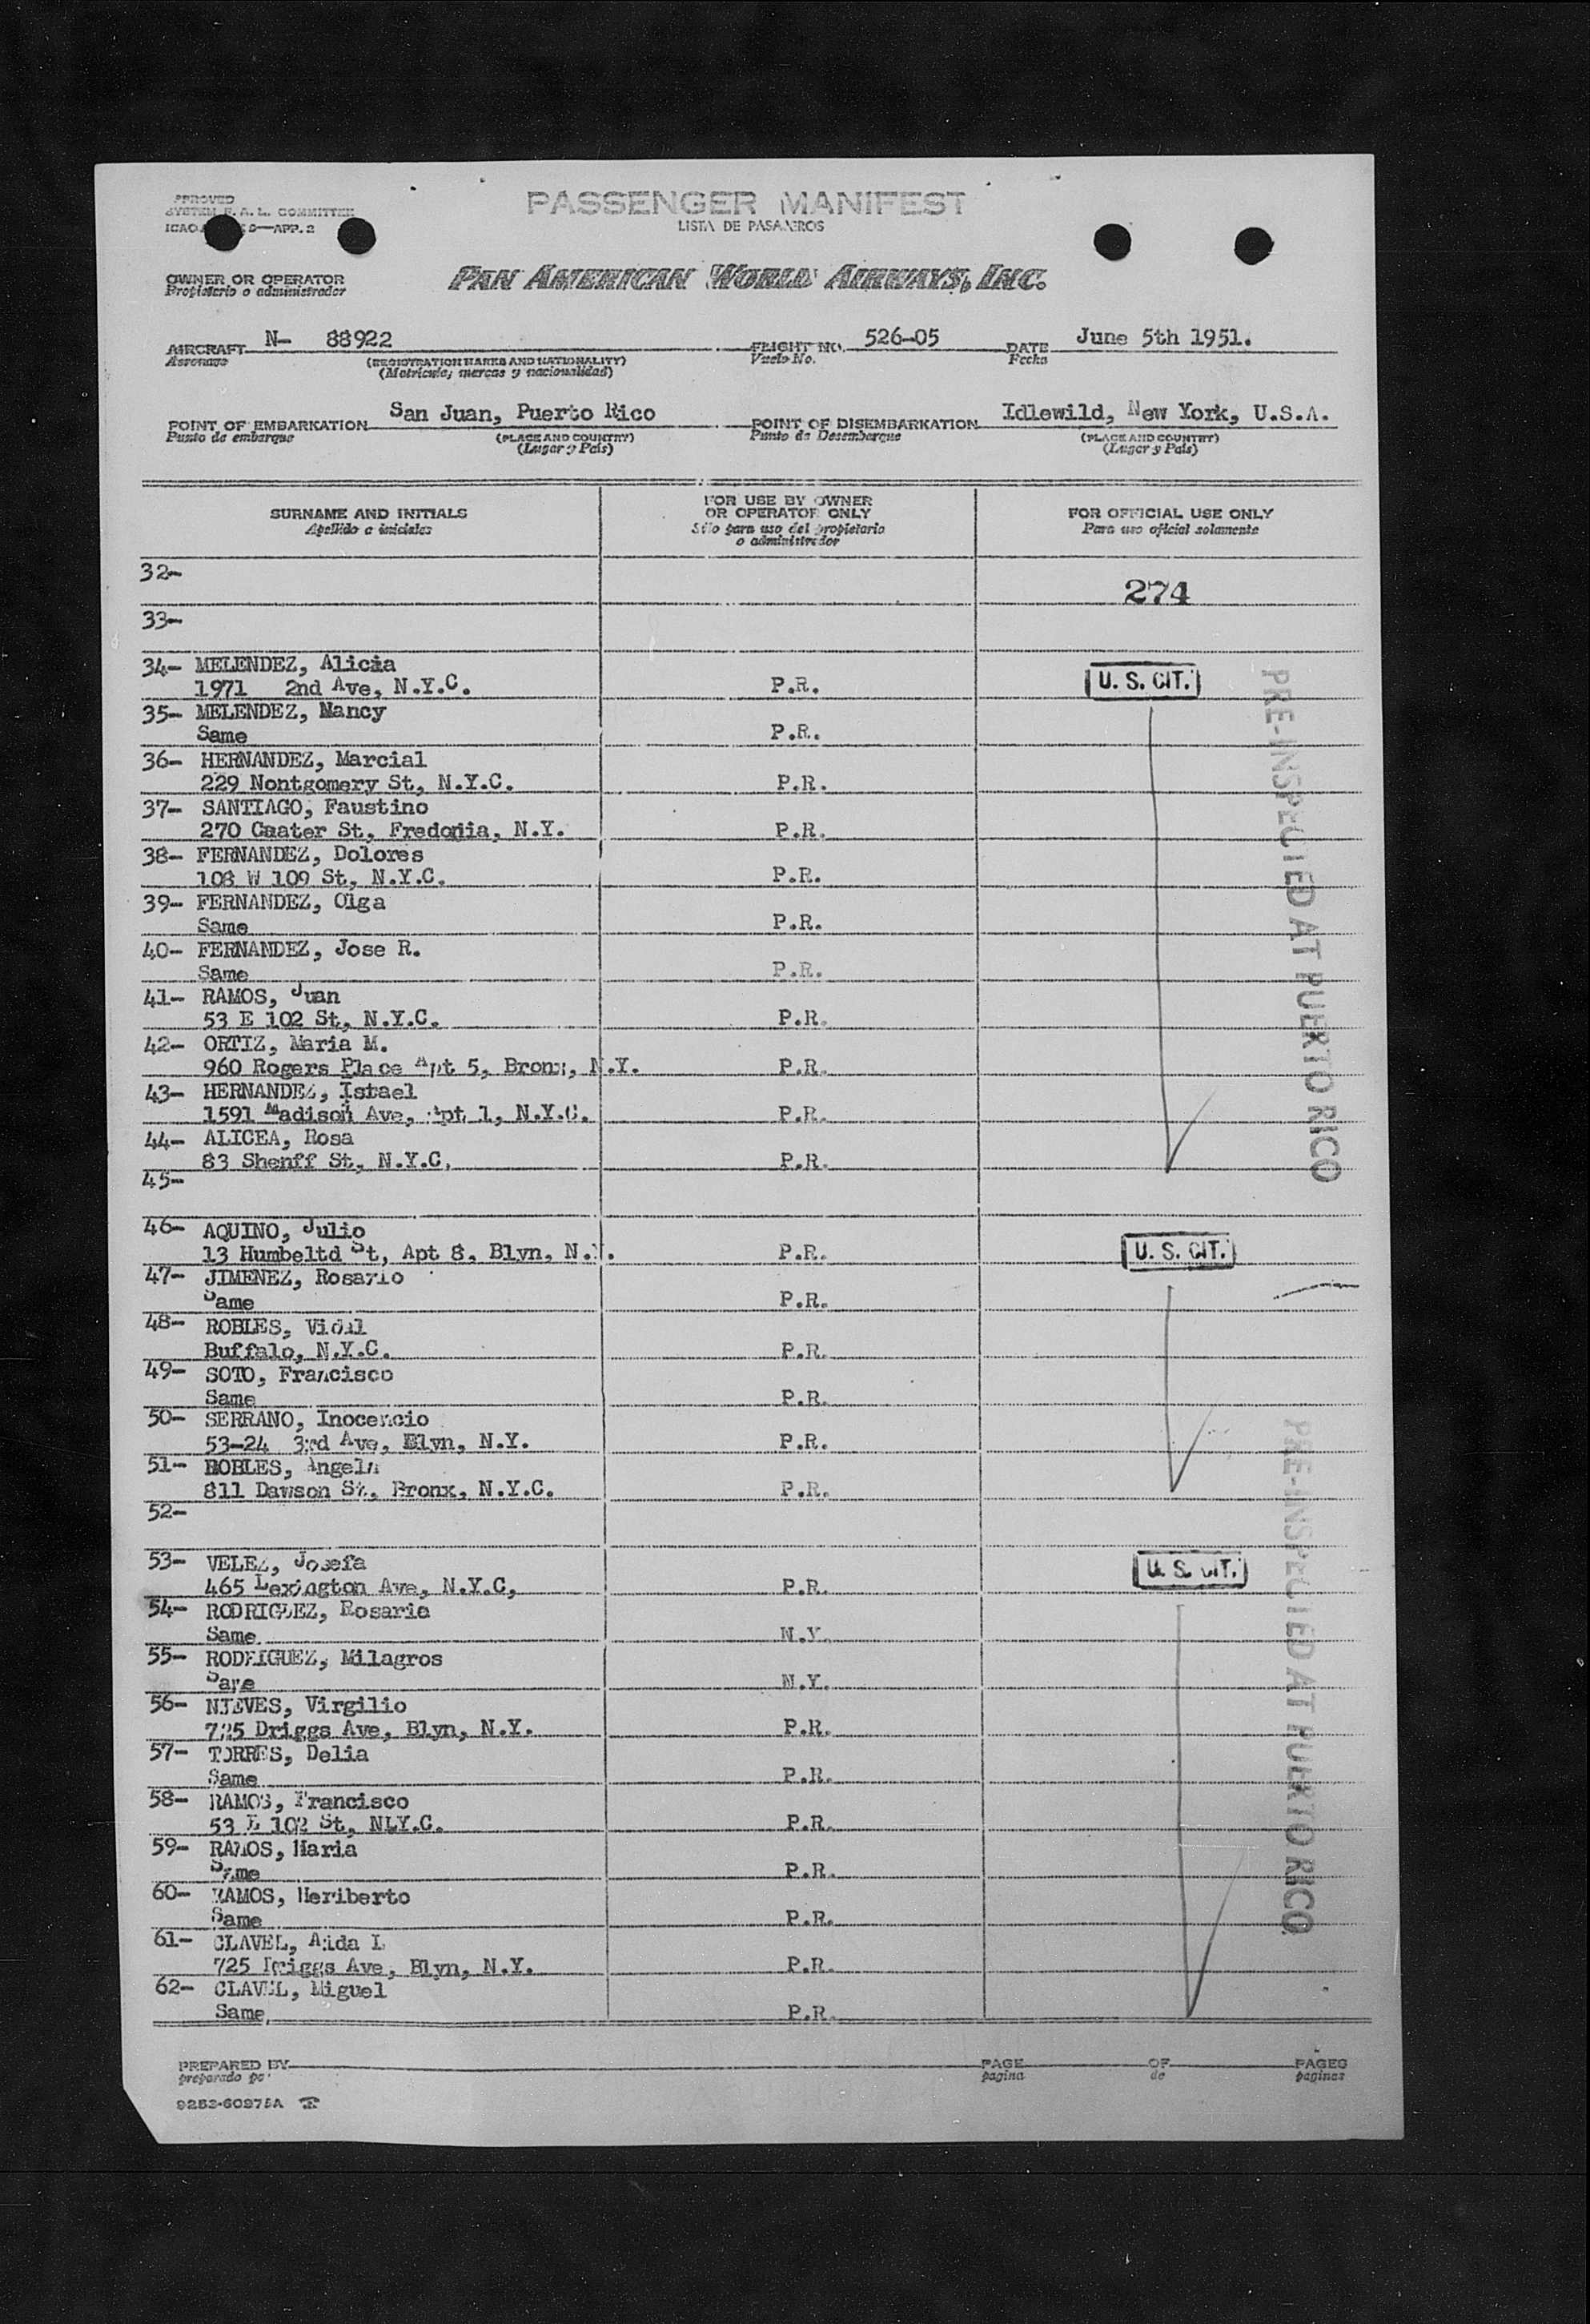 PPROVED
SYSTEM F. A. L. COMMITTEE
ICAO 9—APP. 2
PASSENGER MANIFEST
LISTA DE PASAJEROS
OWNER OR OPERATOR
Propietario o administrador
PAN AMERICAN WORLD AIRWAYS, INC.
AIRCRAFT N- 88922 FLIGHT NO. 526-05 DATE June 5th 1951.
Aeronave (REGISTRATION MARKS AND NATIONALITY) Vuelo No. Fecha
(Matricula, marcas y nacionalidad)
POINT OF EMBARKATION San Juan, Puerto Rico POINT OF DISEMBARKATION Idlewild, New York, U.S.A.
Punto de embarque (PLACE AND COUNTRY) Punto de Desembarque (PLACE AND COUNTRY)
(Lugar y País) (Lugar y País)
SURNAME AND INITIALS
Apellido e iniciales
FOR USE BY OWNER
OR OPERATOR ONLY
Sólo para uso del propietario
o administrador
FOR OFFICIAL USE ONLY
Para uso oficial solamente
32-
274
33-
34- MELENDEZ, Alicia
1971 2nd Ave, N.Y.C. P.R. U. S. CIT.
35- MELENDEZ, Nancy
Same P.R.
36- HERNANDEZ, Marcial
229 Nontgomery St, N.Y.C. P.R.
37- SANTIAGO, Faustino
270 Caater St, Fredonia, N.Y. P.R.
38- FERNANDEZ, Dolores
108 W 109 St, N.Y.C. P.R.
39- FERNANDEZ, Olga
Same P.R.
40- FERNANDEZ, Jose R.
Same P.R.
41- RAMOS, Juan
53 E 102 St, N.Y.C. P.R.
42- ORTIZ, Maria M.
960 Rogers Place Apt 5, Bronx, N.Y. P.R.
43- HERNANDEZ, Istael
1591 Madison Ave, Apt 1, N.Y.C. P.R.
44- ALICEA, Rosa
83 Shenff St, N.Y.C. P.R.
45-
PRE-INSPECTED AT PUERTO RICO
46- AQUINO, Julio
13 Humbeltd St, Apt 8, Blyn, N.Y. P.R. U. S. CIT.
47- JIMENEZ, Rosario
Same P.R.
48- ROBLES, Vidal
Buffalo, N.Y.C. P.R.
49- SOTO, Francisco
Same P.R.
50- SERRANO, Inocencio
53-24 3rd Ave, Blyn, N.Y. P.R.
51- ROBLES, Angela
811 Dawson St, Bronx, N.Y.C. P.R.
52-
53- VELEZ, Josefa
465 Lexington Ave, N.Y.C, P.R. U. S. CIT.
54- RODRIGUEZ, Rosaria
Same N.Y.
55- RODRIGUEZ, Milagros
Same N.Y.
56- NIEVES, Virgilio
725 Driggs Ave, Blyn, N.Y. P.R.
57- TORRES, Delia
Same P.R.
58- RAMOS, Francisco
53 E 102 St, NLY.C. P.R.
59- RAMOS, Maria
Same P.R.
60- RAMOS, Heriberto
Same P.R.
61- CLAVEL, Aida L
725 Driggs Ave, Blyn, N.Y. P.R.
62- CLAVEL, Miguel
Same P.R.
PRE-INSPECTED AT PUERTO RICO
PREPARED BY PAGE OF PAGES
preparado por pagina de paginas
9253-60975A